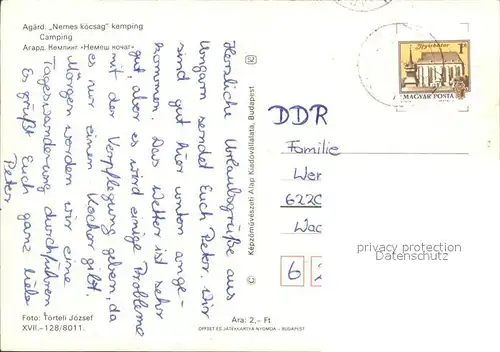 Agárd. „Nemes kócsag” kemping
Camping
Агард. Кемпинг «Немеш кочаг»
Herzliche Urlaubsgrüße aus
Ungarn sendet Euch Peter. Wir
sind gut hier unten ange-
kommen. Das Wetter ist sehr
gut, aber es wird einige Probleme
mit der Verpflegung geben, da
es nur einen Kocher gibt.
Morgen werden wir eine
Tageswanderung durchführen.
Es grüßt Euch ganz liebe
Peter
Foto: Törteli József
XVII.-128/8011.
Képzőművészeti Alap Kiadóvállalata, Budapest
Ára: 2,- Ft
OFFSET ÉS JÁTÉKKÁRTYA NYOMDA - BUDAPEST
MAGYAR POSTA
DDR
Familie
Wer
622
Wac
6
privacy protection
oldthing.de